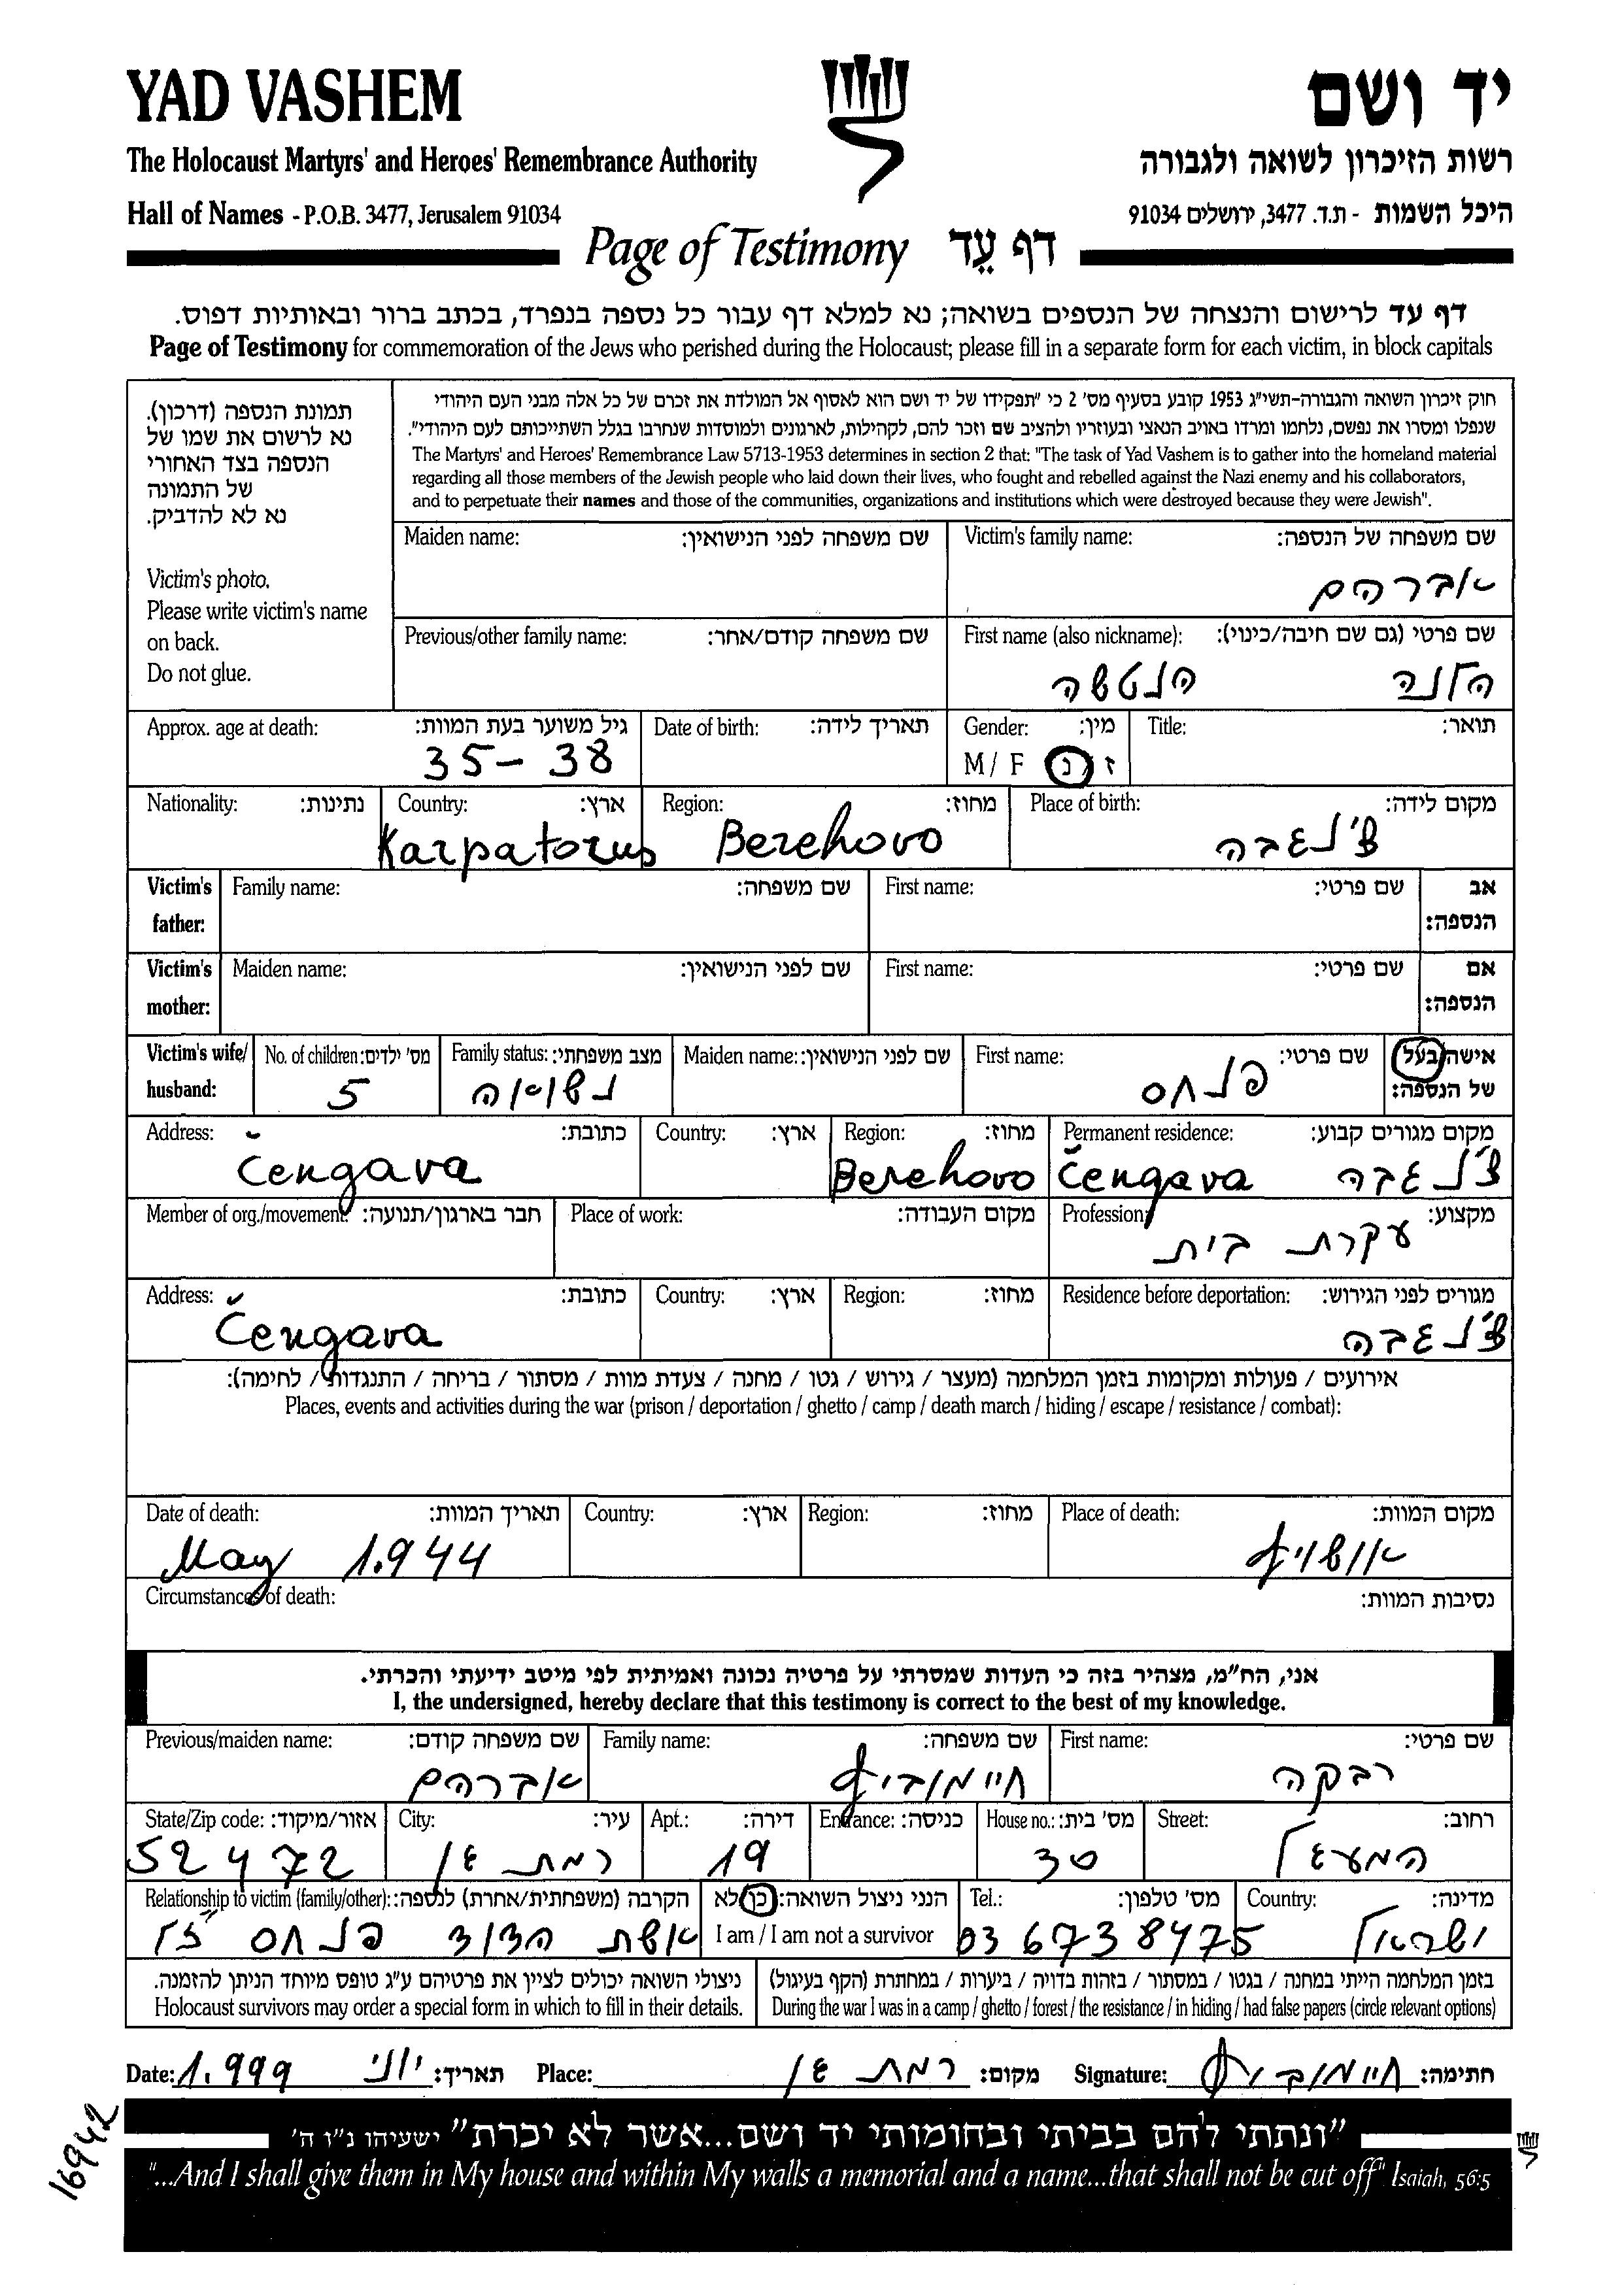 YAD VASHEM
יד ושם
The Holocaust Martyrs' and Heroes' Remembrance Authority
רשות הזיכרון לשואה ולגבורה
Hall of Names - P.O.B. 3477, Jerusalem 91034
היכל השמות - ת.ד. 3477, ירושלים 91034
Page of Testimony דף עֵד
דף עד לרישום והנצחה של הנספים בשואה; נא למלא דף עבור כל נספה בנפרד, בכתב ברור ובאותיות דפוס.
Page of Testimony for commemoration of the Jews who perished during the Holocaust; please fill in a separate form for each victim, in block capitals
תמונת הנספה (דרכון).
נא לרשום את שמו של
הנספה בצד האחורי
של התמונה
נא לא להדביק.
Victim's photo.
Please write victim's name
on back.
Do not glue.
חוק זיכרון השואה והגבורה-תשי"ג 1953 קובע בסעיף מס' 2 כי "תפקידו של יד ושם הוא לאסוף אל המולדת את זכרם של כל אלה מבני העם היהודי
שנפלו ומסרו את נפשם, נלחמו ומרדו באויב הנאצי ובעוזריו ולהציב שם וזכר להם, לקהילות, לארגונים ולמוסדות שנחרבו בגלל השתייכותם לעם היהודי".
The Martyrs' and Heroes' Remembrance Law 5713-1953 determines in section 2 that: "The task of Yad Vashem is to gather into the homeland material
regarding all those members of the Jewish people who laid down their lives, who fought and rebelled against the Nazi enemy and his collaborators,
and to perpetuate their names and those of the communities, organizations and institutions which were destroyed because they were Jewish".
Victim's family name: שם משפחה של הנספה:
אברהם
Maiden name: שם משפחה לפני הנישואין:
First name (also nickname): שם פרטי (גם שם חיבה/כינוי):
הלנה הנטשה
Previous/other family name: שם משפחה קודם/אחר:
Title: תואר:
Gender: מין:
M / F ז / נ
Date of birth: תאריך לידה:
Approx. age at death: גיל משוער בעת המוות:
35 - 38
Place of birth: מקום לידה:
צ'נגבה
Region: מחוז:
Berehovo
Country: ארץ:
Karpatorus
Nationality: נתינות:
Victim's father: אב הנספה:
First name: שם פרטי:
Family name: שם משפחה:
Victim's mother: אם הנספה:
First name: שם פרטי:
Maiden name: שם לפני הנישואין:
Victim's wife/ husband: אישה/בעל של הנספה:
First name: שם פרטי:
פנחס
Maiden name: שם לפני הנישואין:
Family status: מצב משפחתי:
נשואה
No. of children: מס' ילדים:
5
Permanent residence: מקום מגורים קבוע:
Čengava צ'נגבה
Region: מחוז:
Berehovo
Country: ארץ:
Address: כתובת:
Čengava
Profession: מקצוע:
עקרת בית
Place of work: מקום העבודה:
Member of org./movement: חבר בארגון/תנועה:
Residence before deportation: מגורים לפני הגירוש:
צ'נגבה
Region: מחוז:
Country: ארץ:
Address: כתובת:
Čengava
אירועים / פעולות ומקומות בזמן המלחמה (מעצר / גירוש / גטו / מחנה / צעדת מוות / מסתור / בריחה / התנגדות / לחימה):
Places, events and activities during the war (prison / deportation / ghetto / camp / death march / hiding / escape / resistance / combat):
Place of death: מקום המוות:
אושויץ
Region: מחוז:
Country: ארץ:
Date of death: תאריך המוות:
May 1.944
Circumstances of death: נסיבות המוות:
אני, הח"מ, מצהיר בזה כי העדות שמסרתי על פרטיה נכונה ואמיתית לפי מיטב ידיעתי והכרתי.
I, the undersigned, hereby declare that this testimony is correct to the best of my knowledge.
First name: שם פרטי:
רבקה
Family name: שם משפחה:
חיימוביץ
Previous/maiden name: שם משפחה קודם:
אברהם
Street: רחוב:
המעגל
House no.: מס' בית:
30
Entrance: כניסה:
Apt.: דירה:
19
City: עיר:
רמת גן
State/Zip code: אזור/מיקוד:
52472
Country: מדינה:
ישראל
Tel.: מס' טלפון:
03 6738475
הנני ניצול השואה: כן/לא
I am / I am not a survivor
Relationship to victim (family/other): הקרבה (משפחתית/אחרת) לנספה:
אשת הדוד פנחס ז"ל
בזמן המלחמה הייתי במחנה / בגטו / במסתור / בזהות בדויה / ביערות / במחתרת (הקף בעיגול)
During the war I was in a camp / ghetto / forest / the resistance / in hiding / had false papers (circle relevant options)
ניצולי השואה יכולים לציין את פרטיהם ע"ג טופס מיוחד הניתן להזמנה.
Holocaust survivors may order a special form in which to fill in their details.
Date: 1.999 יוני תאריך: Place: רמת גן מקום: Signature: חיימוביץ חתימה:
16942
"ונתתי להם בביתי ובחומותי יד ושם...אשר לא יכרת" ישעיהו נ"ו ה'
"...And I shall give them in My house and within My walls a memorial and a name...that shall not be cut off" Isaiah, 56:5